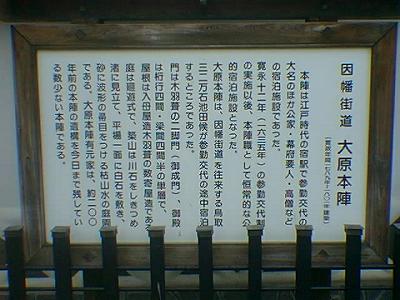 因幡街道 大原本陣
(寛政年間一七八九~一八〇一年建築)
本陣は江戸時代の宿駅で参勤交代の
大名のほか公家・幕府要人、高僧など
の宿泊施設であった。
寛永十二年(一六三五年)の参勤交代制
の実施以後、本陣職として恒常的な公
的宿泊施設となった。
大原本陣は、因幡街道を往来する鳥取
三二万石池田候が参勤交代の途中宿泊
するところであった。
門は木羽葺の一脚門(御成門)、御殿
は桁行四間・梁間四間半の単層で、
屋根は入母屋造木羽葺の数寄屋造である
庭は廻遊式で、築山は川石をしきつめ
渚に見立て、平場一面に白石を敷き、
砂に波形の帚目をつける枯山水の庭園
である。大原本陣有元家は、約二〇〇
年前の本陣の遺構を今日まで残してい
る数少ない本陣である。